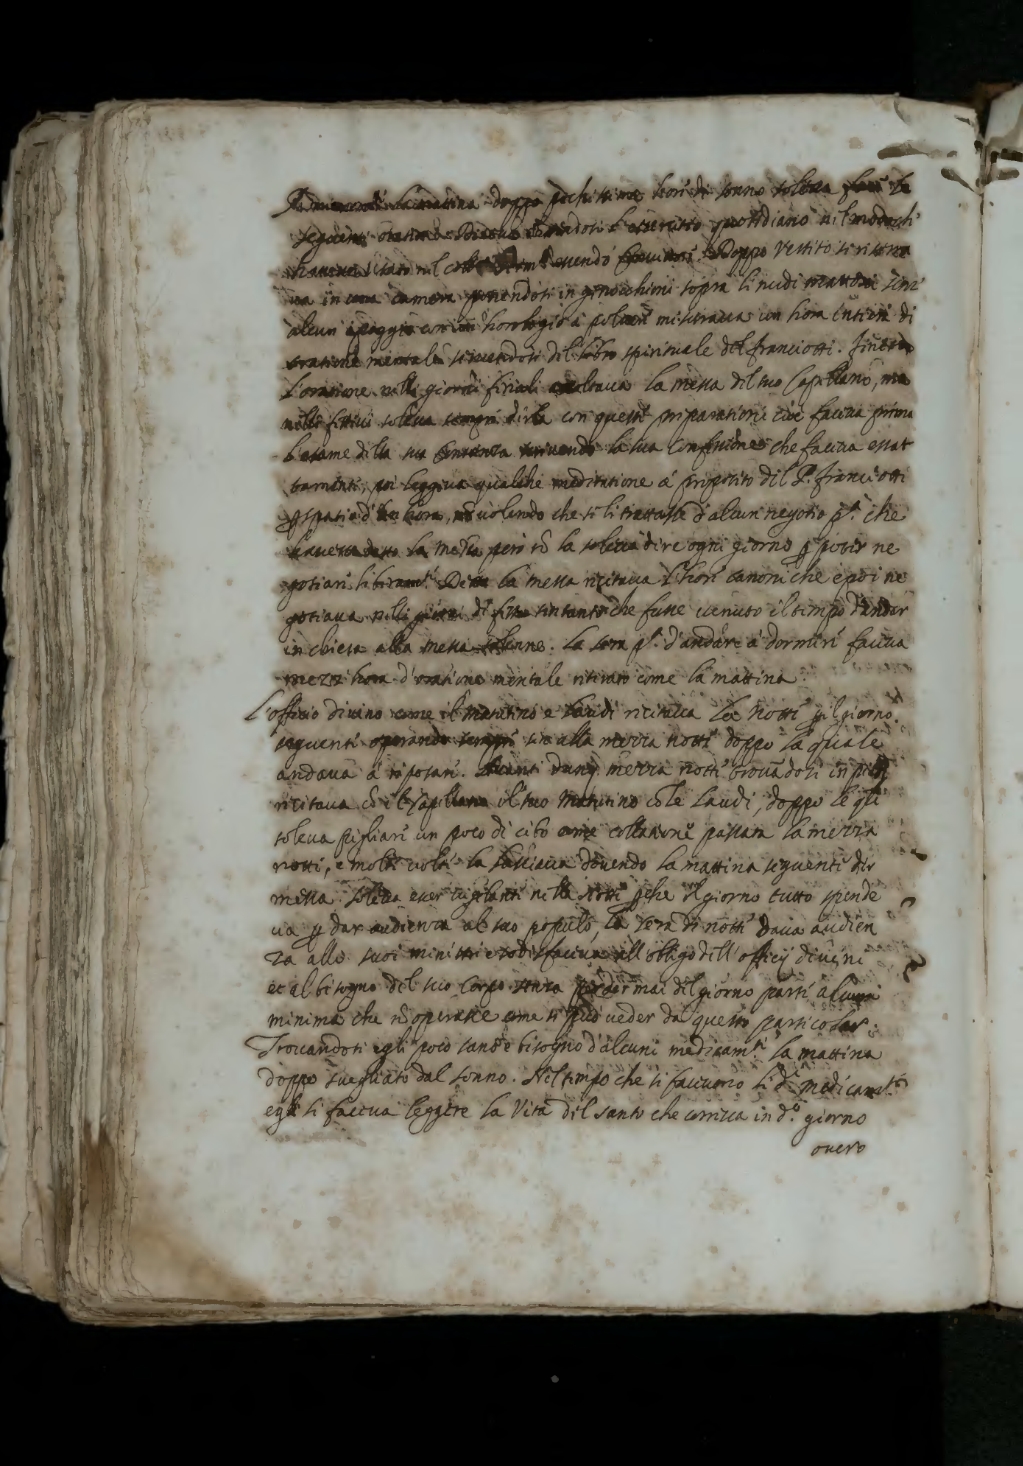 la mattina doppo pochissime hore di sonno soleva fare le
seguenti essercitio quotidiano nel modo ch'
haveva usato nel essendo Doppo vestito si ritira
va in una camera ponendosi in ginocchioni sopra li nudi mattoni senz'
alcun appoggio con un horologio à polvere misurava un hora intiera di
oratione mentale servendosi del libro spirituale del franciotti. finita
l'oratione nelli giorni feriali ascoltava la messa del suo Capellano, ma
nelli festivi soleva sempre dirla con queste preparationi cioè faceva prima
l'esame della sua scrivendo la sua Confessione che faceva esat
tamente, poi leggeva qualche meditatione à proposito del P. franciotti
p spatio d' hora, nõ volendo che se li trattasse d'alcun negotio p.ª che
havesse detto la messa però nõ la soleva dire ogni giorno p poter ne
gotiare liberam.te Detta la messa recitava l'hore canoniche e poi ne
gotiava nelli giorni di festa sintanto che fusse venuto il tempo d'andar
in chiesa alla messa solenne. la sera p.ª d'andare à dormire faceva
mezz hora d'oratione mentale ritirato come la mattina.
L'officio divino come il matutino e laudi recitava la notte p il giorno
seguente operando sempre sin alla mezza notte doppo la quale
andava à riposare. Avanti dunq mezza notte trovãdosi in piedi
recitava cõ il Capellano il suo matutino cõ le laudi, doppo le qli
soleva pigliare un poco di cibo come collatione passata la mezza
notte, e molte volte la lasciava dovendo la mattina seguente dir
messa. soleva esser vigilante nella notte pche il giorno tutto spende
va p dar audienza al suo populo, la sera di notte dava audien
za allo suoi ministri e sodisfaceva all'obligo dell'officij divini
et al bisogno del suo corpo senza perder mai del giorno parte alcuna
minima che nõ operasse come si può veder da questo particolar.
Trovandosi egli poco sano e bisogno d'alcuni medicam.ti la mattina
doppo svegliato dal sonno. Nel tempo che si facevano li d.i medicam.ti
egli si faceva leggere la Vita del santo che correva in d.º giorno
overo